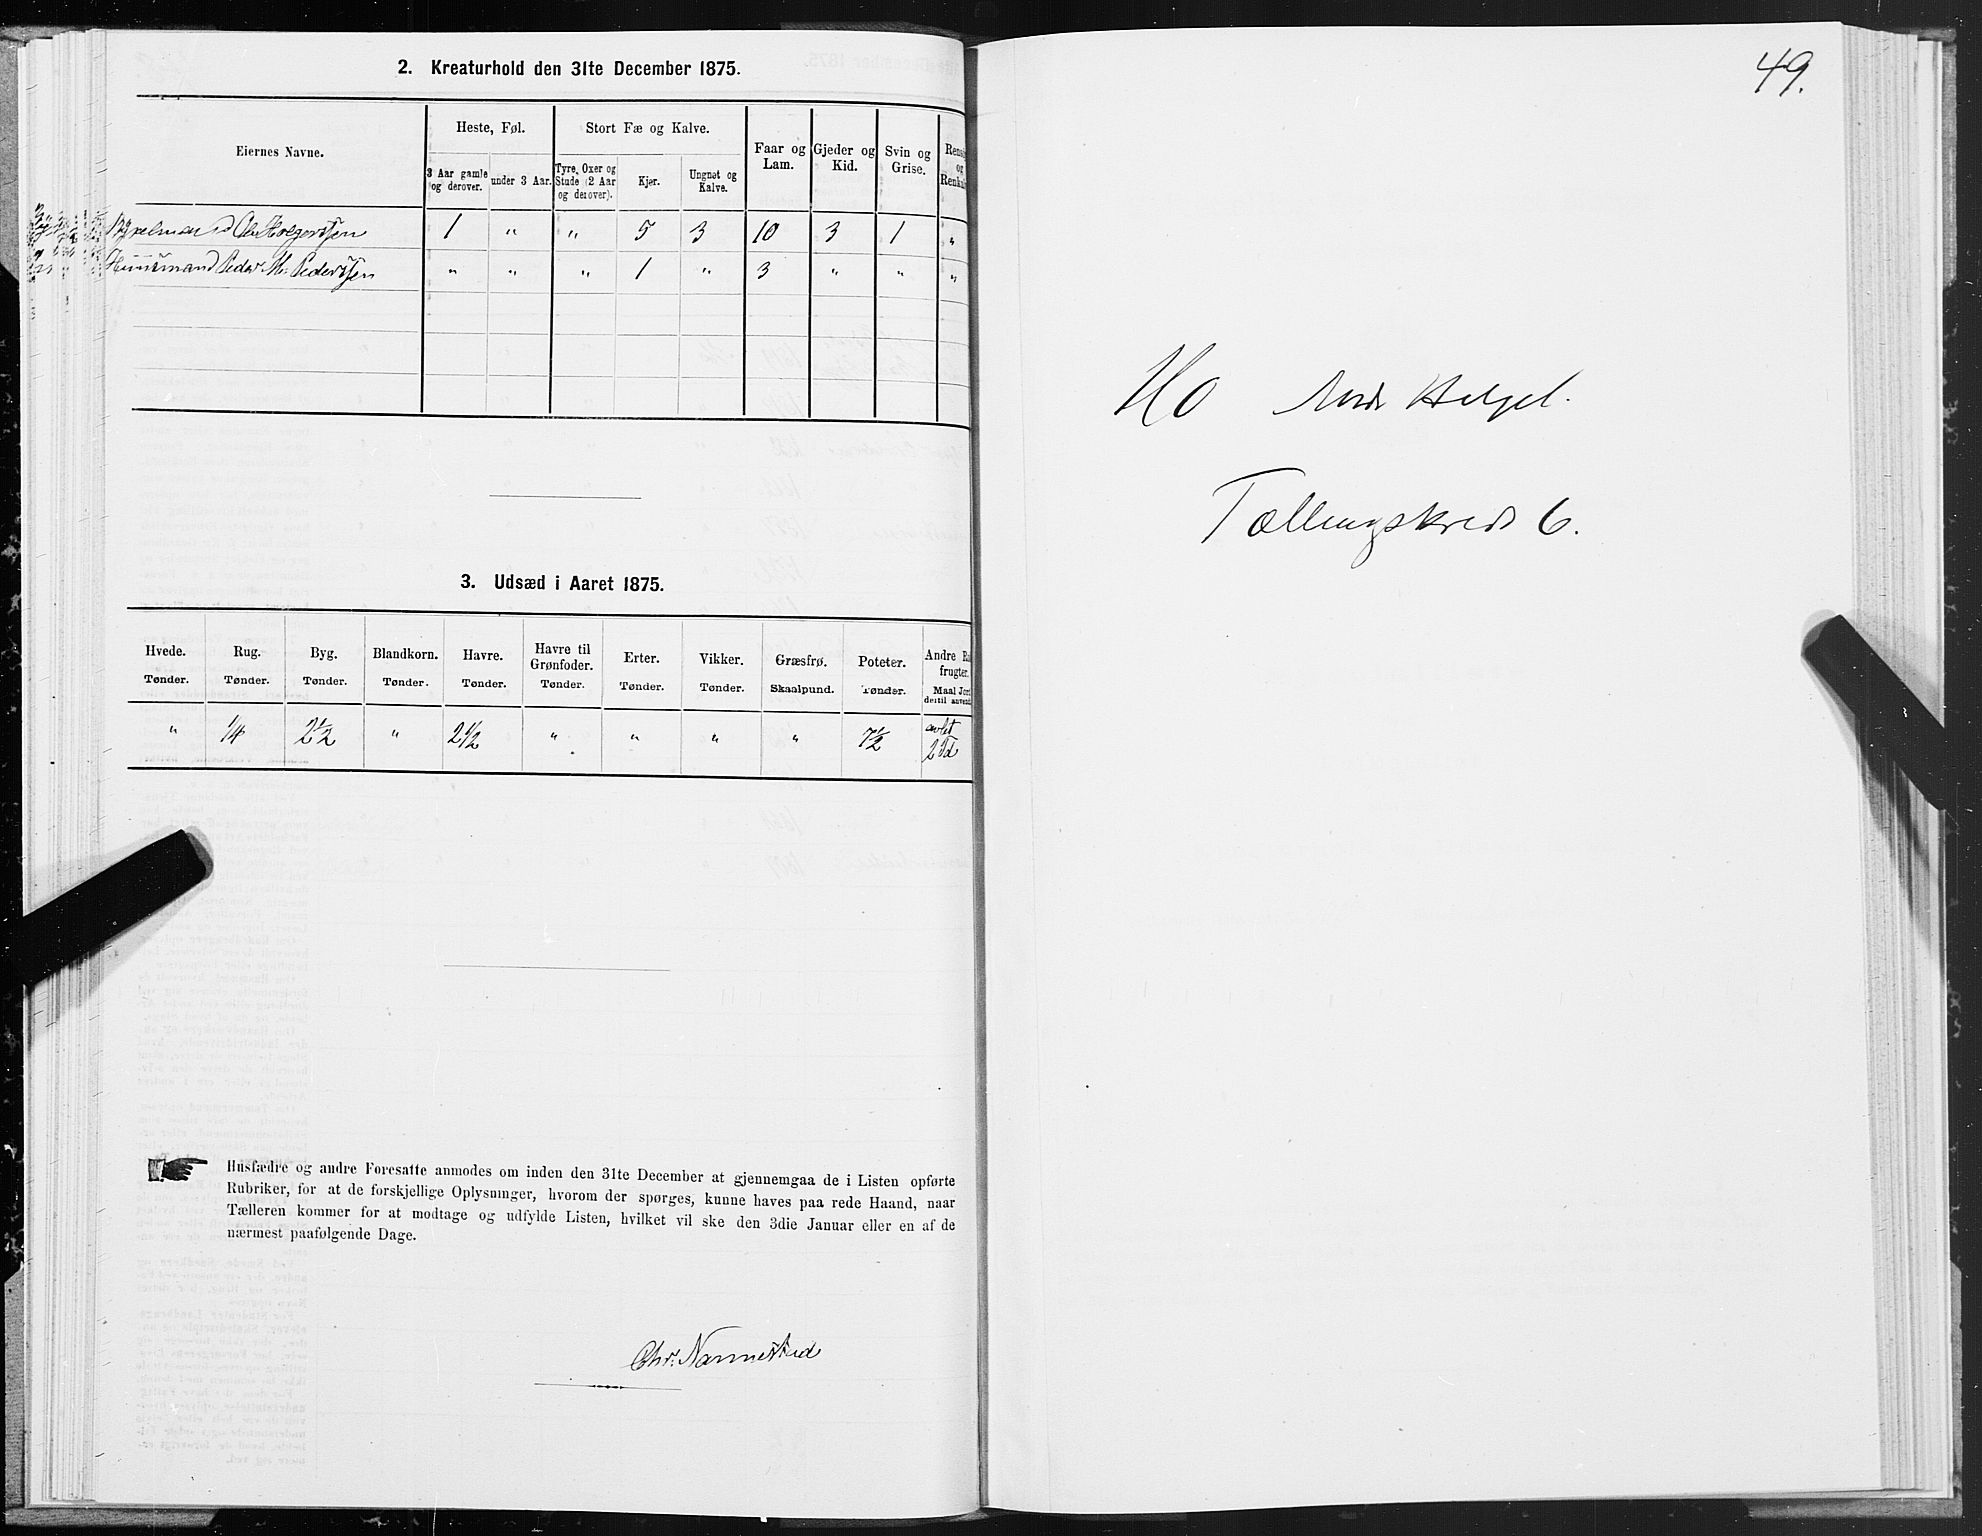 2. Kreaturhold den 31te December 1875.
Eiernes Navne.
Heste, Føl.
Stort Fæ og Kalve.
Faar og Lam.
Gjeder og Kid.
Svin og Grise.
og
3 Aar gamle og derover.
under 3 Aar.
Tyre, Oxer og Stude (2 Aar og derover).
Kjør.
Ungnøt og Kalve.
1 " " 5 3 10 3 1 "
Huusmand Peder M. Pedersen " " " 1 " 3 " " "
3. Udsæd i Aaret 1875.
Hvede. Rug. Byg. Blandkorn. Havre. Havre til Grønfoder. Erter. Vikker. Græsfrø. Poteter. Andre
frugter.
Tønder. Tønder. Tønder. Tønder. Tønder. Tønder. Tønder. Tønder. Skaalpund. Tønder. Maal
dertil
" 1/4 2 1/2 " 2 1/2 " " " " 7 1/2 avlet
2 Td
Husfædre og andre Foresatte anmodes om inden den 31te December at gjennemgaa de i Listen opførte
Rubriker, for at de forskjellige Oplysninger, hvorom der spørges, kunne haves paa rede Haand, naar
Tælleren kommer for at modtage og udfylde Listen, hvilket vil ske den 3die Januar eller en af de
nærmest paafølgende Dage.
Chr. Nannestad
49.
Tællingskreds 6.